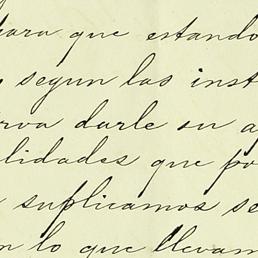 para que estando
segun las inst
rva darle su a
lidades que po
suplicamos se
n lo que llevam